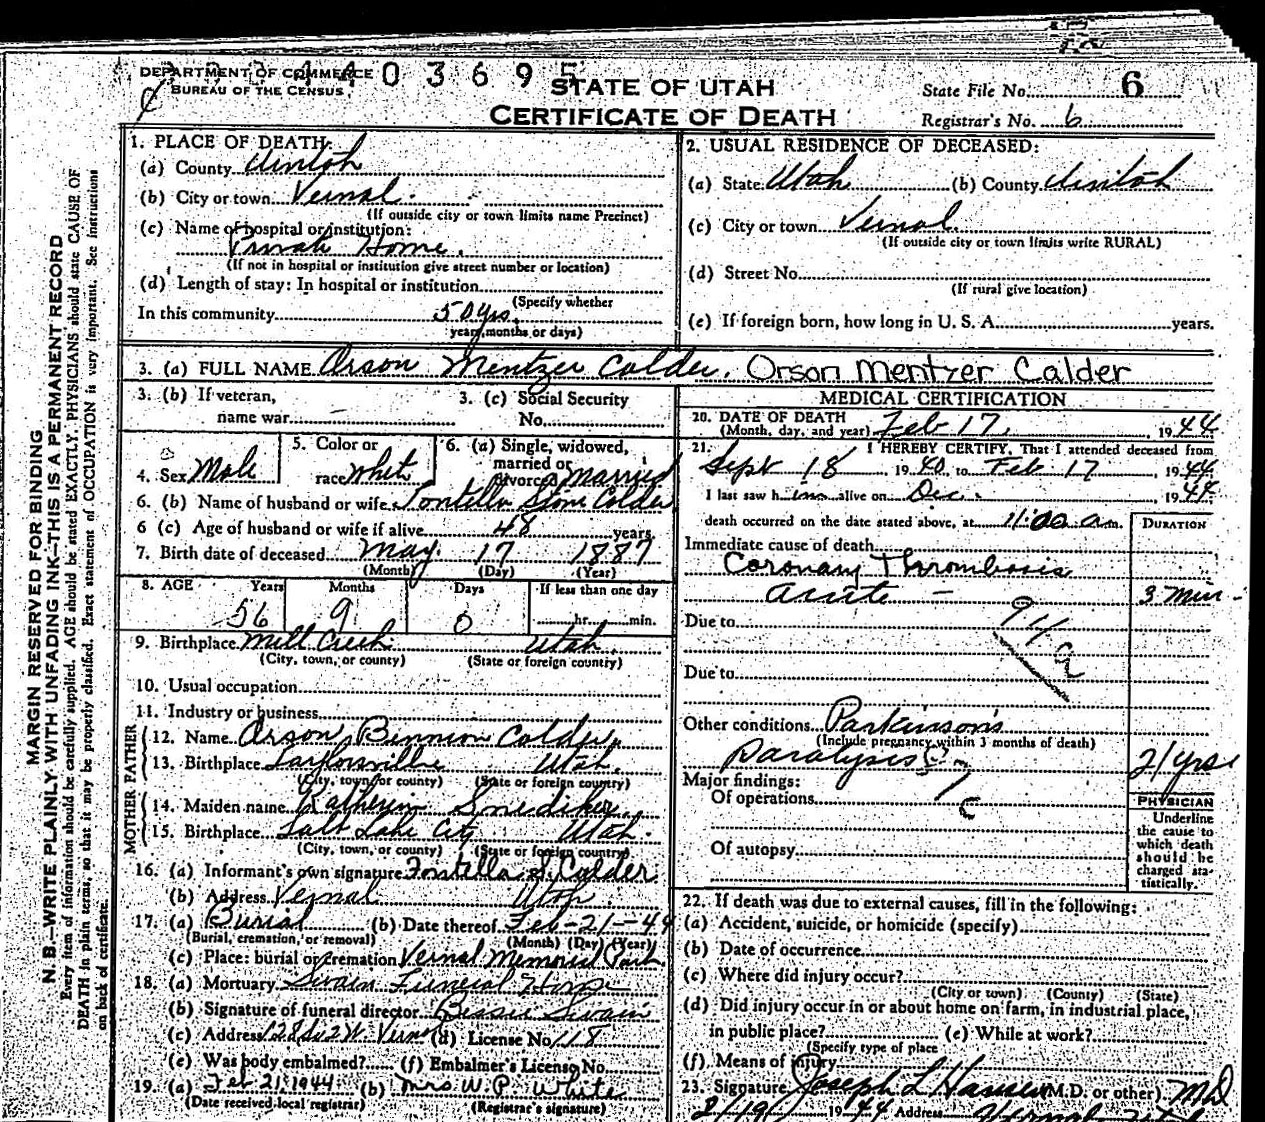 DEPARTMENT OF COMMERCE
BUREAU OF THE CENSUS
403695
STATE OF UTAH
CERTIFICATE OF DEATH
State File No. 6
Registrar's No. 6
1. PLACE OF DEATH:
(a) County Uintah
(b) City or town Vernal
(If outside city or town limits name Precinct)
(c) Name of hospital or institution:
Private Home.
(If not in hospital or institution give street number or location)
(d) Length of stay: In hospital or institution
(Specify whether
In this community 50 yrs.
years, months or days)
2. USUAL RESIDENCE OF DECEASED:
(a) State Utah (b) County Uintah
(c) City or town Vernal
(If outside city or town limits write RURAL)
(d) Street No.
(If rural give location)
(e) If foreign born, how long in U. S. A. years.
3. (a) FULL NAME Orson Mentzer Calder. Orson Mentzer Calder
3. (b) If veteran,
name war
3. (c) Social Security
No.
4. Sex Male
5. Color or
race White
6. (a) Single, widowed,
married or
divorced Married
6. (b) Name of husband or wife Fontella Stone Calder
6 (c) Age of husband or wife if alive 48 years.
7. Birth date of deceased May 17 1887
(Month) (Day) (Year)
8. AGE Years Months Days If less than one day
56 9 0 hr. min.
9. Birthplace Mill Creek Utah.
(City, town, or county) (State or foreign country)
10. Usual occupation
11. Industry or business
FATHER
12. Name Orson Bennion Calder.
13. Birthplace Taylorsville Utah.
(City, town, or county) (State or foreign country)
MOTHER
14. Maiden name Kathryn Snediker.
15. Birthplace Salt Lake City Utah.
(City, town, or county) (State or foreign country)
16. (a) Informant's own signature Fontella S. Calder
(b) Address Vernal Utah.
17. (a) Burial (b) Date thereof Feb-21-44
(Burial, cremation, or removal) (Month) (Day) (Year)
(c) Place: burial or cremation Vernal Memorial Park
18. (a) Mortuary Swain Funeral Home
(b) Signature of funeral director Bessie Swain
(c) Address Vernal (d) License No. 118
(e) Was body embalmed? (f) Embalmer's License No.
19. (a) Feb 21, 1944 (b) Mrs W. P. White
(Date received local registrar) (Registrar's signature)
MEDICAL CERTIFICATION
20. DATE OF DEATH
(Month, day, and year) Feb 17 1944
21. I HEREBY CERTIFY, That I attended deceased from
Sept 18 1940, to Feb 17 1944
I last saw him alive on Dec. 1944
death occurred on the date stated above, at 11:00 a.m.
DURATION
Immediate cause of death
Coronary Thrombosis
acute - 3 min.
94a
Due to
Due to
Other conditions Parkinson's
(Include pregnancy within 3 months of death)
paralysis 21 yrs
Major findings:
Of operations
Of autopsy
PHYSICIAN
Underline
the cause to
which death
should be
charged sta-
tistically.
22. If death was due to external causes, fill in the following:
(a) Accident, suicide, or homicide (specify)
(b) Date of occurrence
(c) Where did injury occur?
(City or town) (County) (State)
(d) Did injury occur in or about home on farm, in industrial place,
in public place? (e) While at work?
(Specify type of place
(f) Means of injury
23. Signature Joseph L Hansen (M.D. or other) MD
2/19/ 1944 Address Vernal Utah
MARGIN RESERVED FOR BINDING
N. B.—WRITE PLAINLY WITH UNFADING INK—THIS IS A PERMANENT RECORD
Every item of information should be carefully supplied. AGE should be stated EXACTLY. PHYSICIANS should state CAUSE OF
DEATH in plain terms, so that it may be properly classified. Exact statement of OCCUPATION is very important. See instructions
on back of certificate.